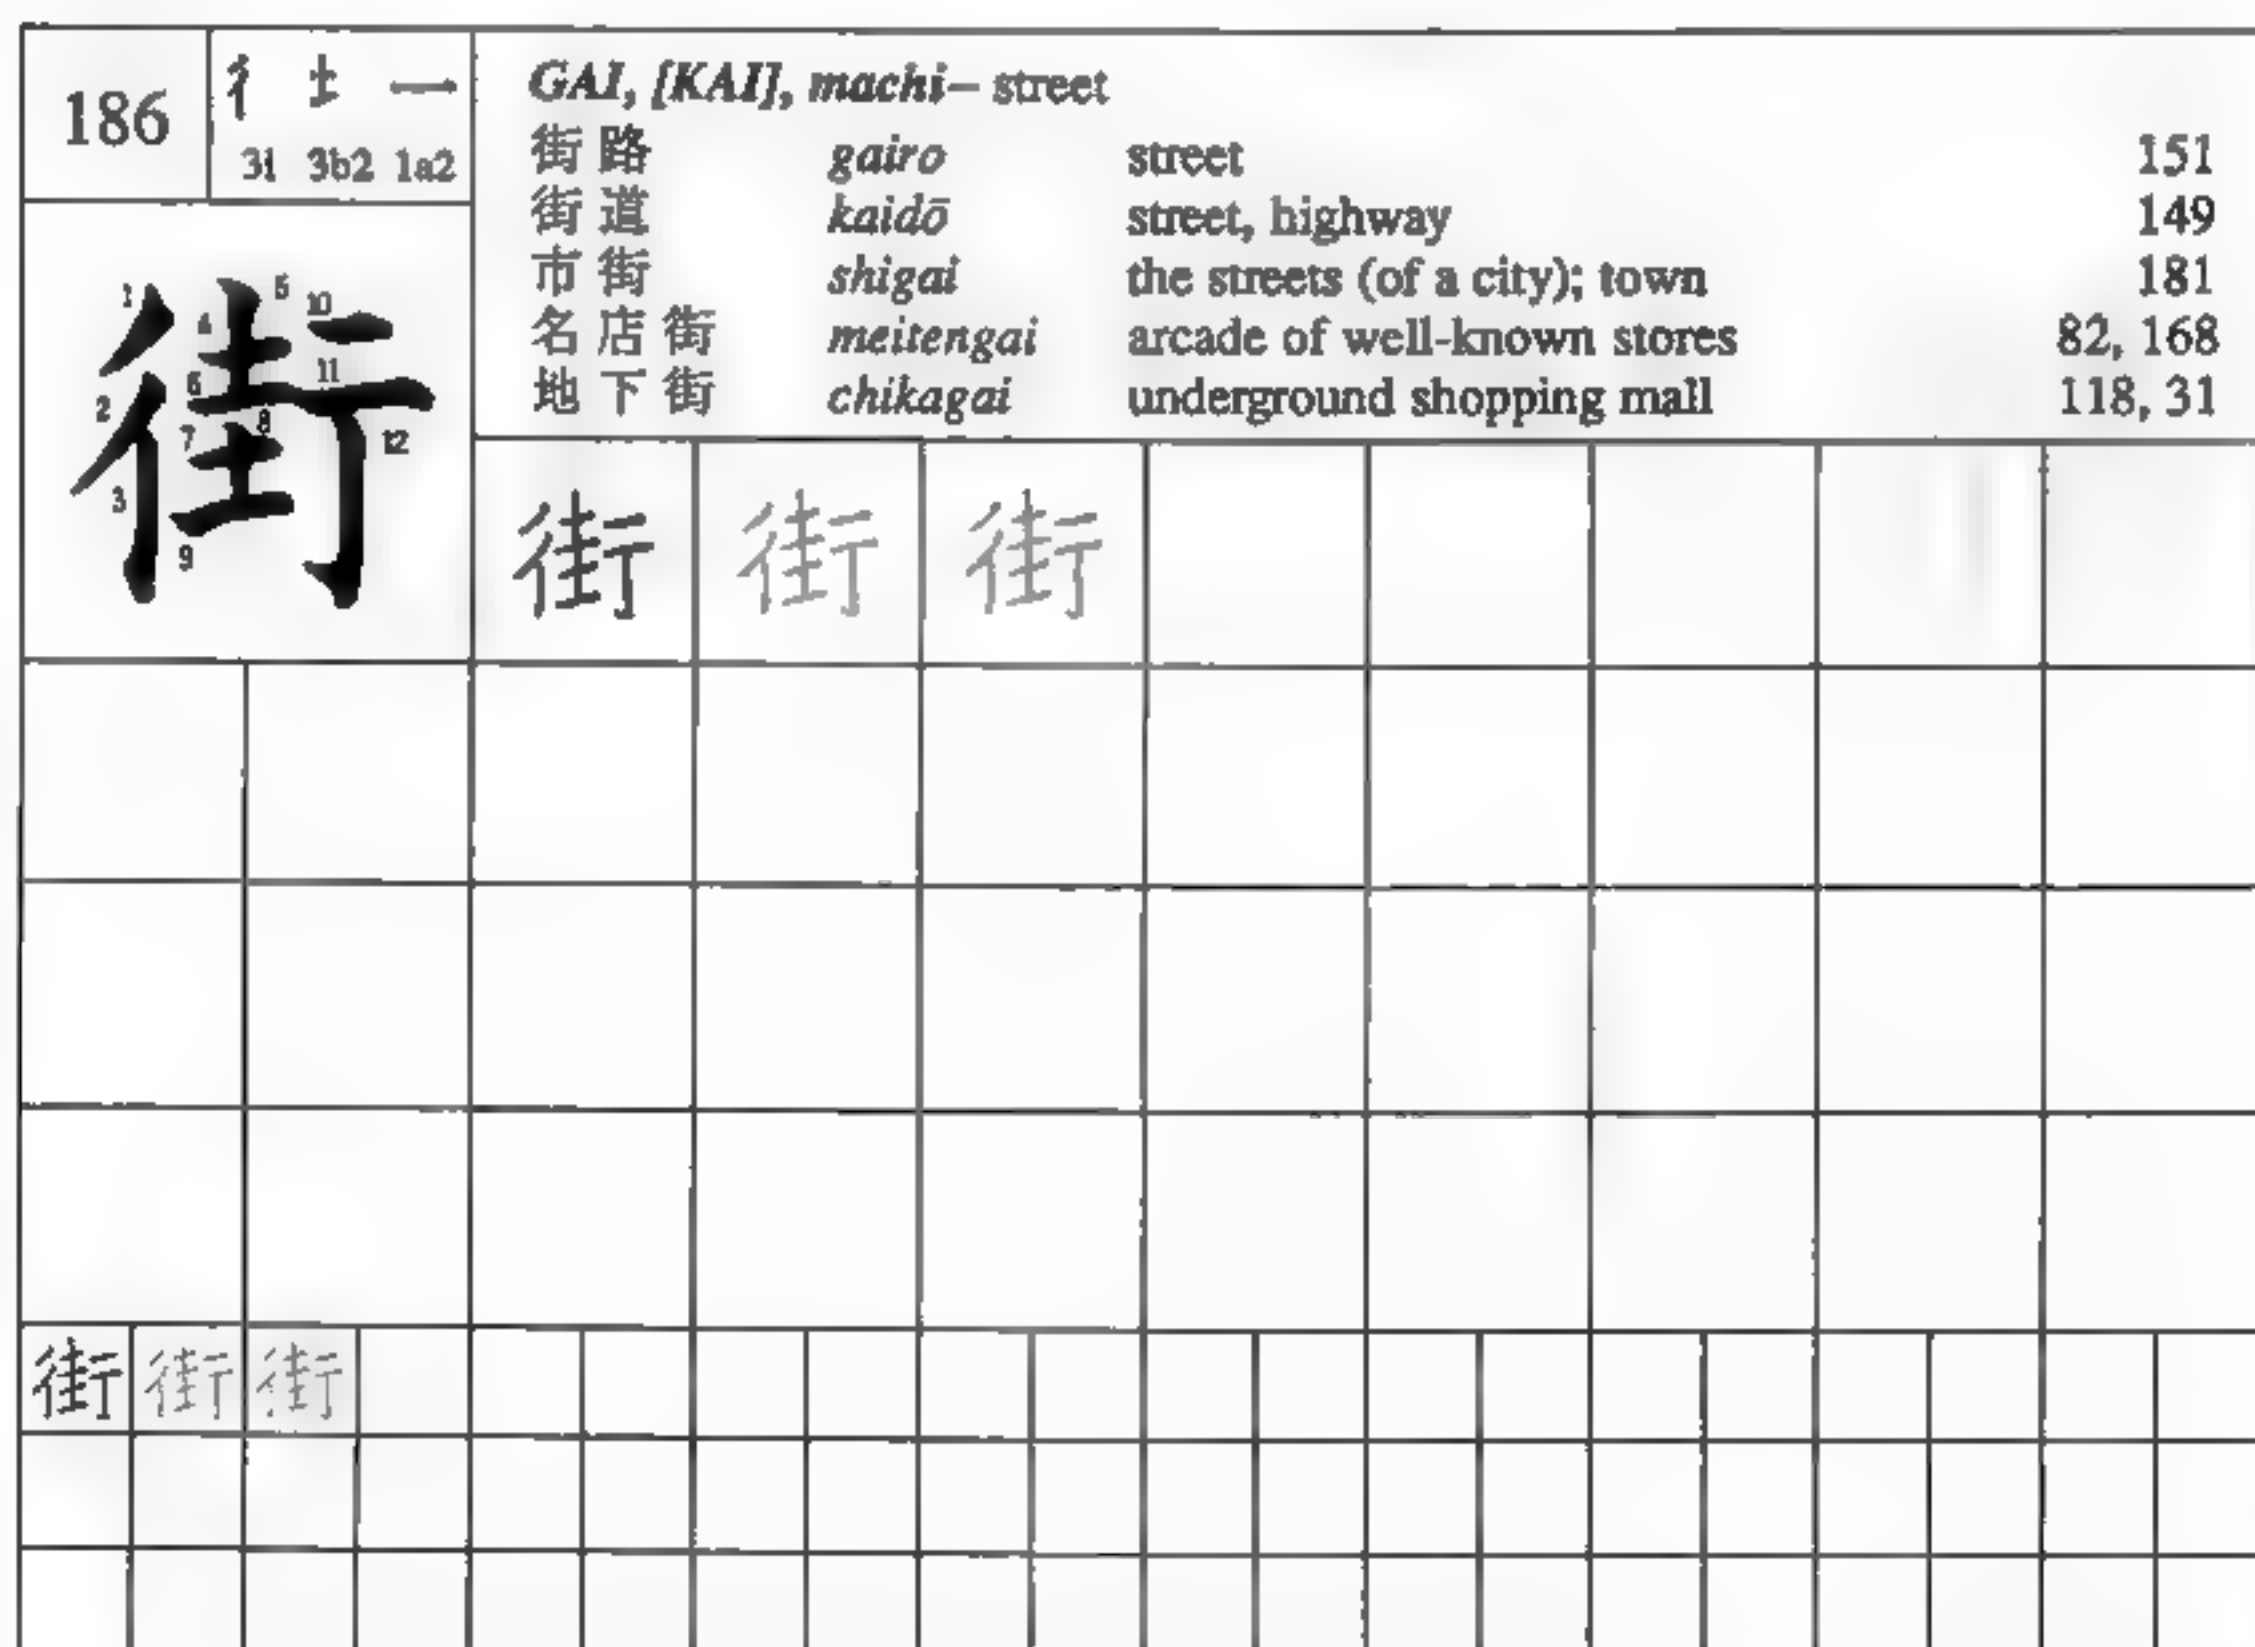 186
彳 土 一
3i 3b2 1a2
GAI, [KAI], machi – street
街路 gairo street 151
街道 kaidō street, highway 149
市街 shigai the streets (of a city); town 181
名店街 meitengai arcade of well-known stores 82, 168
地下街 chikagai underground shopping mall 118, 31
街
1 2 3 4 5 6 7 8 9 10 11 12
街 街 街
街 街 街